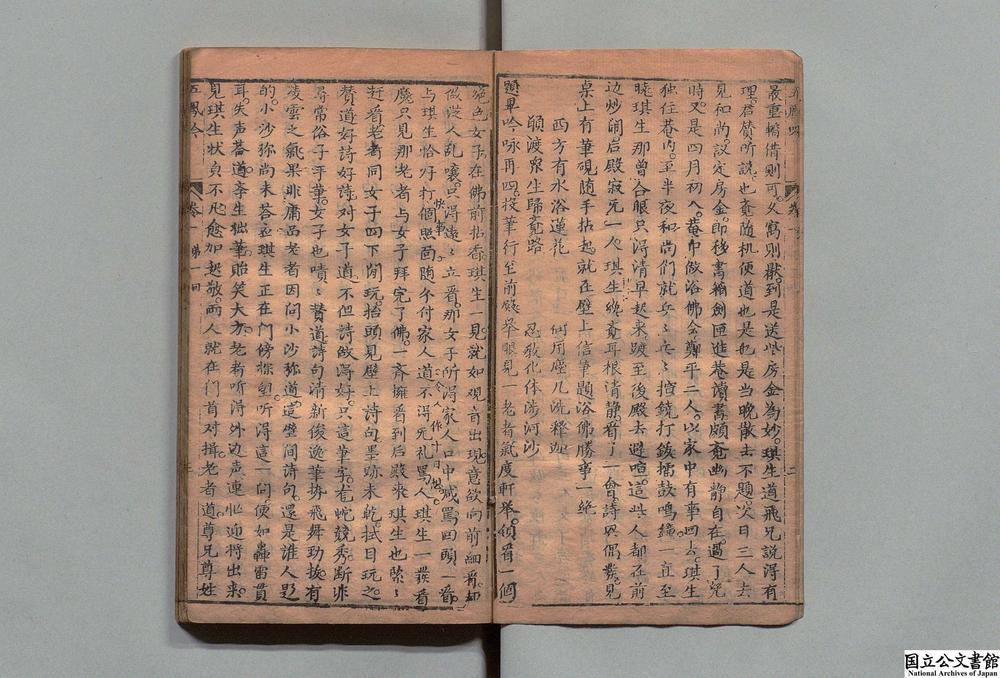 五鳳吟 卷一 二
最重輜借則可。久寓則厭。到是送些房金為妙。琪生道飛兄說得有
理。君賛听說也竟随机便道也是也是當晚散去不題。次日三人去
見和尚議定房金。即移書箱劍匣進菴讀書頗竟幽静自在。過了幾
時又是四月初八。菴中做浴佛会鄭平二人。以家中有事回去。琪生
独住菴内。至半夜和尚們就乒乒乓乓擂鐃打鈸擂鼓鳴鐘一直至
曉琪生那曾合眼只得清早起来。踱至後殿去避喧。這些人都在前
边炒閙后殿寂无一人。琪生纔竟耳根清静。看了一會。詩興偶發。見
桌上有筆硯随手拈起就在壁上信筆題浴佛勝事一絶
西方有水浴蓮花 何用塵几洗釋迦
願渡衆生歸竟路 忍教化体涉河沙
題畢吟咏再四。投筆行至前殿举眼見一老者氣度軒举。領着一個
絶色女子。在佛前拈香琪生一見就如观音出現。意欲向前細看。却
做從人乱嚷。只得遠遠立看。那女子听得家人口中喊罵回頭一看。
与琪生恰好打個照面。随分付家人道不得无礼罵人琪生一發着
快事。
今作十日思。
魔只見那老者与女子拜完了佛。一齊擁着到后殿来琪生也緊緊
赶着老者同女子四下閒玩。抬頭見壁上詩句墨跡未乾拭目玩之。
賛道好詩好詩。对女子道不但詩做得好。只這筆字。龙蛇競秀断非
尋常俗子手筆。女子也嘖嘖賛道詩句清新俊逸筆势飛舞劲拔。有
凌雲之氣果非庸品老者因问小沙弥道這壁间詩句。還是誰人題
的。小沙弥尚未荅。孟琪生正在门傍探望听得這一问便如轟雷貫
耳。失声荅道。李生拙筆貽笑大方。老者听得外边声連忙迎将出来。
見琪生状貞不凡愈加起敬。两人就在门首对揖。老者道尊兄尊姓
五鳳吟 卷一 第一回 三
国立公文書館
National Archives of Japan